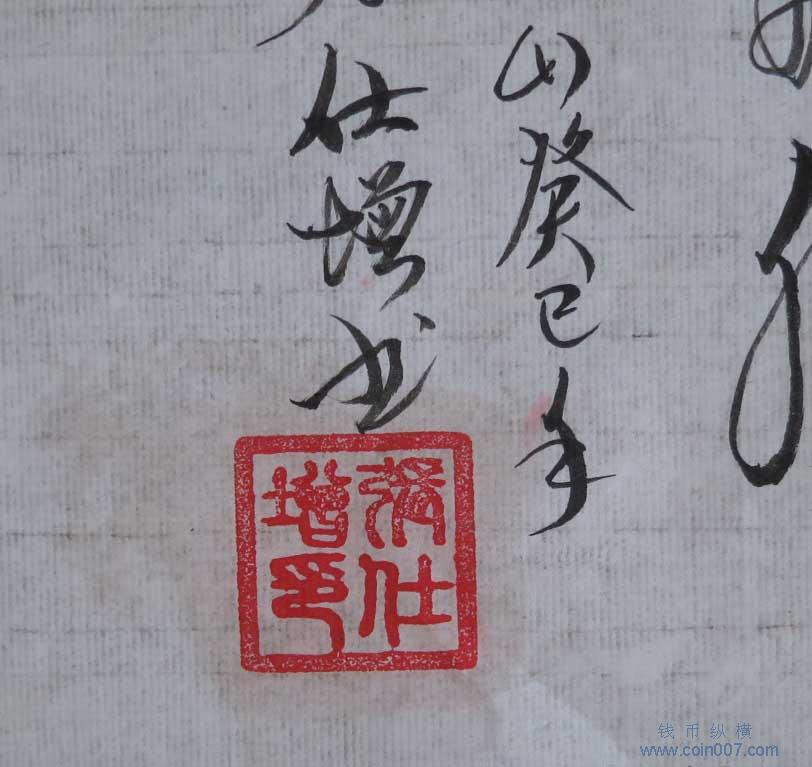 癸巳年
仕增书
張仕
增印
钱币纵横
www.coin007.com